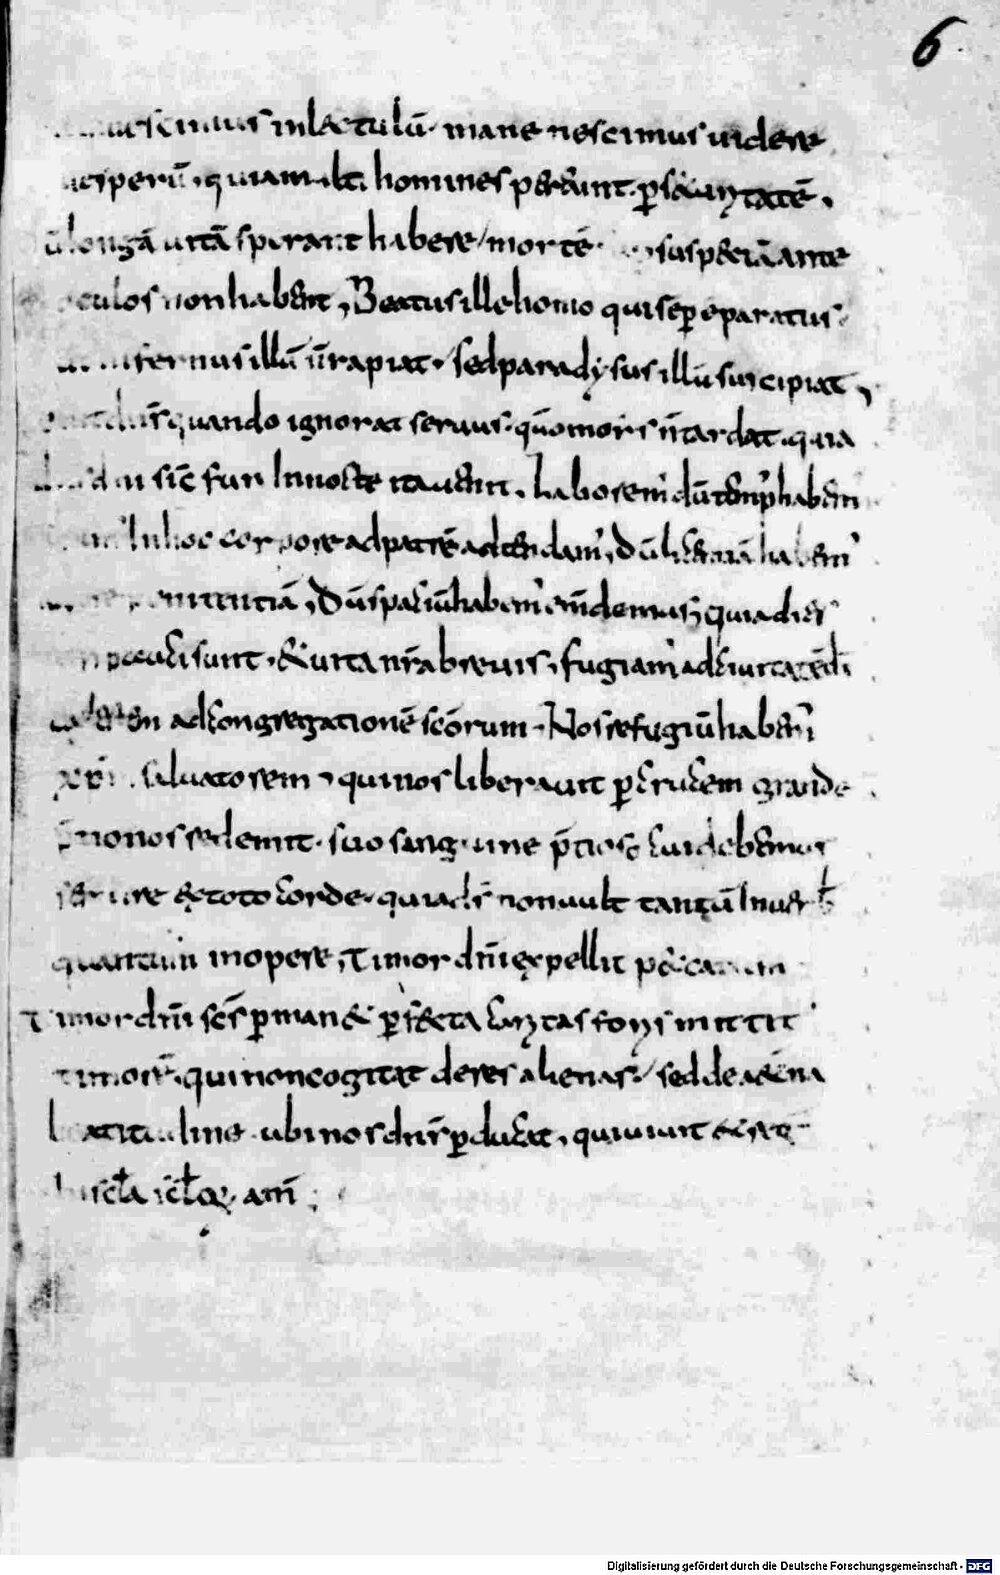 6
inlectulū· mane nescimus uidere
uesperū, quia multi homines pereunt· p̄ securitatē,
ū longā uitā sperant habere / mortē· suspectā ante
oculos non habent, Beatus ille homo qui sēp ē paratus·
infernus illū n̄ rapiat· sed paradysus illū suscipiat,
quando ignorat seruus· quōmo mors n̄ tardat· quia
sic̄ fur In nocte ita uenit, Laborem' dū temp' habem'
In hoc corpore ad patrē adtendam', dū licentiā habem'
penitentiā, dū spaciū habem' emendemus, quia dies
sunt, & uita nr̄a breuis, fugiam' ad ciuitatē dī
ad congregationē scōrum· Nos refugiū habem'
xp̄m saluatorem, qui nos liberauit p̄ crucem grande
nos redemit· suo sanguine p̄tioso cui debemus
seruire ex toto corde· quia ds̄ non uult tantū In uerb̄
quantum in opere, Timor dn̄i expellit peccatum
Timor dn̄i scs̄ permanet p̄fecta caritas foris mittit
timorē, qui non cogitat de res alienas / sed de aeterna
beatitudine· ubi nos dn̄s p̄ducat, qui uiuit & reḡ
In scl̄a scl̄oꝝ am̄
Digitalisierung gefördert durch die Deutsche Forschungsgemeinschaft - DFG